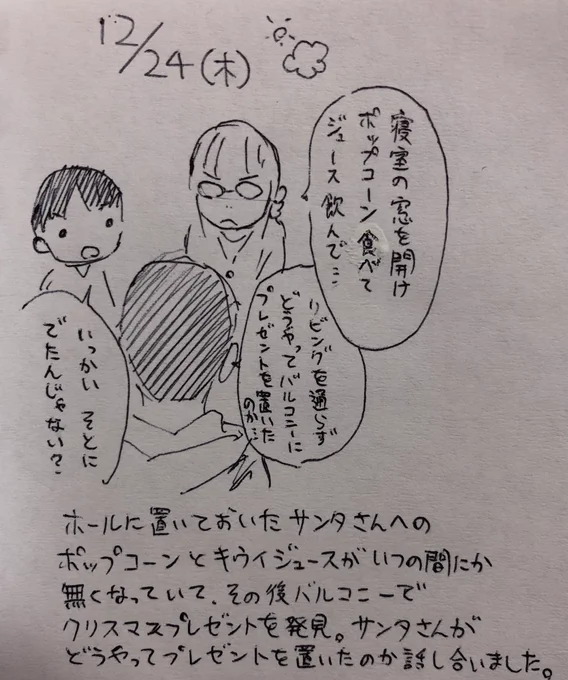 12/24(木)
寝室の窓を開け
ポップコーン食べて
ジュース飲んで…
リビングを通らず
どうやってバルコニーに
プレゼントを置いた
のか…
いっかい そとに
でたんじゃない?
ホールに置いておいたサンタさんへの
ポップコーンとキウイジュースがいつの間にか
無くなっていて、その後バルコニーで
クリスマスプレゼントを発見。サンタさんが
どうやってプレゼントを置いたのか話し合いました。